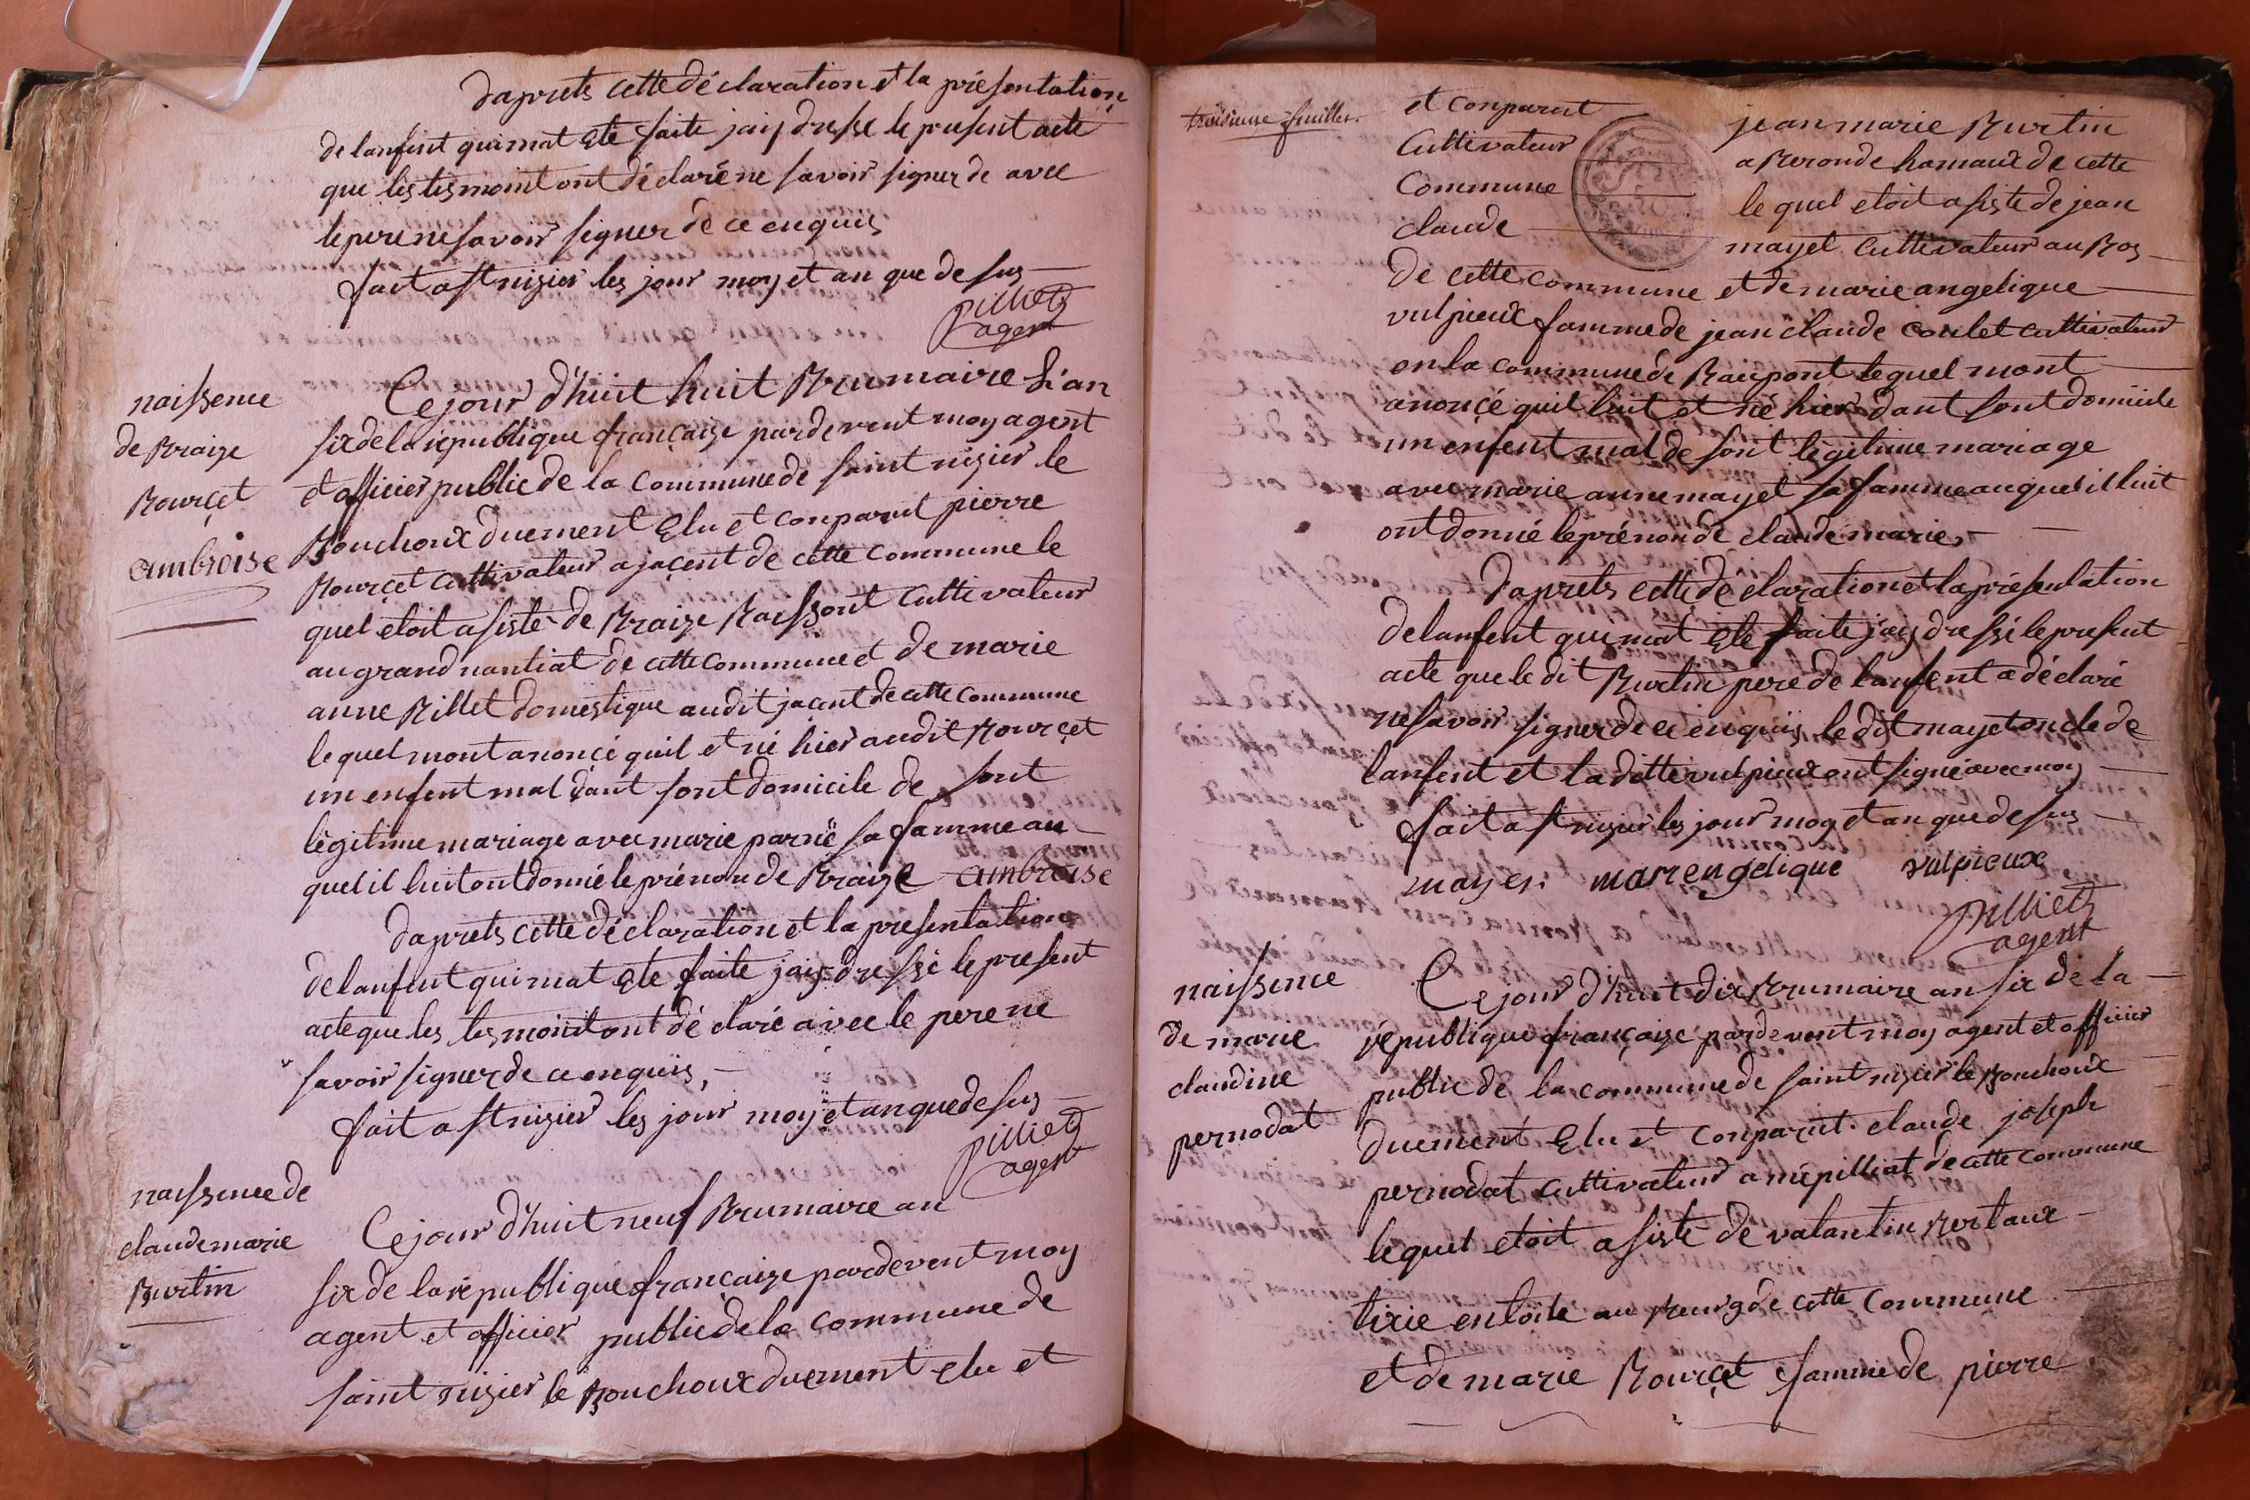 daprets cette déclaration et la présentation
de lanfent quimat eté faite jaiy dressé le present acte
que les tesmoint ont déclaré ne savoir signer de avec
le pere ne savoir signer de ce enquis
fait a st nizier les jour moy et an que desus
pilliet
agent
naissence
de Braize
Bourcet
ambroise
Ce jour d'huit huit Brumaire L'an
six de la republique françaize pardevent moy agent
et officier public de la commune de saint nizier le
Bouchoux duement Elu et conparut pierre
Bourcet cultivateur a jaçent de cette commune le
quel etoit asisté de Braize Baissont cultivateur
au grand nantiat de cette commune et de marie
anne Billet domestique audit jaçent de cette commune
lequel mont anoncé quil et né hier audit Bourcet
un enfent mal dant sont domicile de sont
légitime mariage avec marie parné sa famme au
quel il luit ont donné le prénon de Braize ambroise
daprets cette déclaration et la presentation
de lanfent quimat eté faite jaiy dressé le present
acte que les tesmoint ont déclaré avec le pere ne
savoir signer de ce enquis
fait a st nizier les jour moy et an que desus
pilliet
agent
naissence de
claude marie
Burtin
Ce jour d'huit neuf Brumaire an
six de la republique françaize pardevent moy
agent et officier public de la commune de
saint nizier le Bouchoux duement Elu et
troisieme feuillet.
et conparut jean marie Burtin
Cultivateur a Beronde hamaux de cette
Commune le quel etoit asisté de jean
claude mayet cultivateur au Bos
de cette commune et de marie angelique
vulpieux famme de jean claude coulet cultivateur
en la commune de Baupont lequel mont
anoncé quil luit et né hier dant sont domicile
un enfent mal de sont légitime mariage
avec marie anne mayet sa famme auquel il luit
ont donné le prénon de claude marie
daprets cette déclaration et la présentation
de lanfent quimat eté faite jaiy dressé le present
acte que le dit Burtin pere de lanfent a déclaré
ne savoir signer de ce enquis le dit mayet oncle de
lanfent et la ditte vulpieux ont signé avec moy
fait a st nizier les jour moy et an que desus
mayet marrengelique vulpieux
pilliet
agent
naissence
de marie
claudine
pernodat
Ce jour d'huit dix Brumaire an six de la
republique françaize pardevent moy agent et officier
public de la commune de saint nizier le Bouchoux
duement Elu et conparut claude joseph
pernodat cultivateur a mépilliat de cette commune
lequel etoit asisté de valantin Bertaux
tixié en toile au Bourg de cette commune
et de marie Bourcet famme de pierre